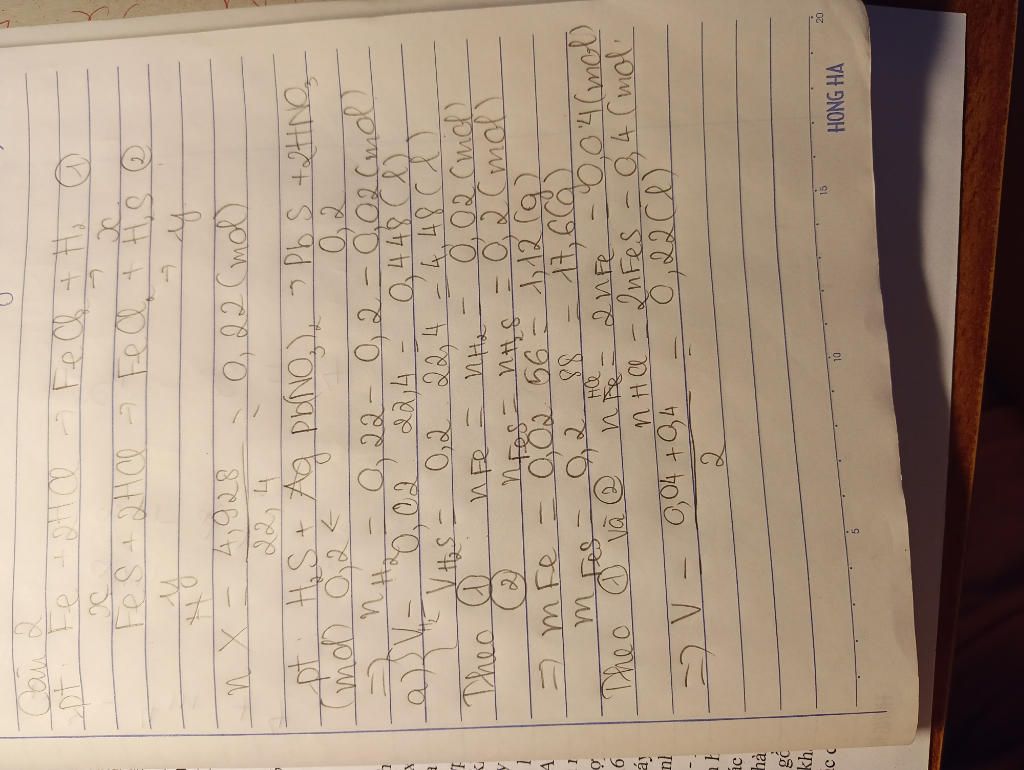 Câu 2
pt: Fe + 2HCl → FeCl₂ + H₂ ①
x → x
FeS + 2HCl → FeCl₂ + H₂S ②
y → y
n X = 4,928 / 22,4 = 0,22 (mol)
-pt: H₂S + Pb(NO₃)₂ → PbS + 2HNO₃
(mol) 0,2 ← 0,2
=> nH₂ = 0,22 - 0,2 = 0,02 (mol)
a) { V H₂ = 0,02 . 22,4 = 0,448 (l)
V H₂S = 0,2 . 22,4 = 4,48 (l)
Theo ① nFe = nH₂ = 0,02 (mol)
② nFeS = nH₂S = 0,2 (mol)
=> mFe = 0,02 . 56 = 1,12 (g)
mFeS = 0,2 . 88 = 17,6 (g)
Theo ① và ② nHCl = 2nFe = 0,04 (mol)
nHCl = 2nFeS = 0,4 (mol)
=> V = 0,04 + 0,4 / 2 = 0,22 (l)
5 10 15 20
HONG HA